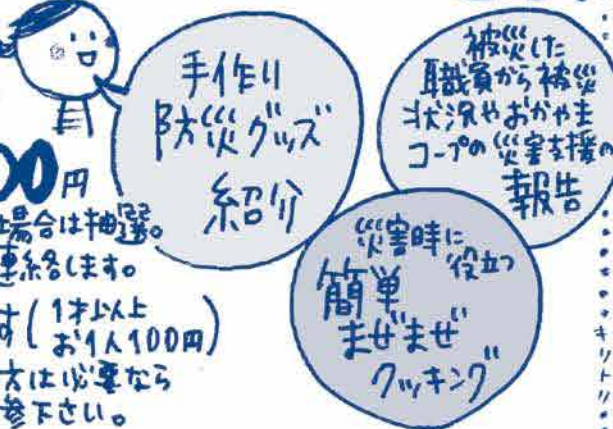 手作り
防災グッズ
紹介
被災した
職員から被災
状況やおかやま
コープの災害支援の
報告
災害時に
役立つ
簡単
まぜまぜ
クッキング
00円
場合は抽選。
連絡します。
す(1才以上
お1人100円)
方は必要なら
参下さい。
キリトリ